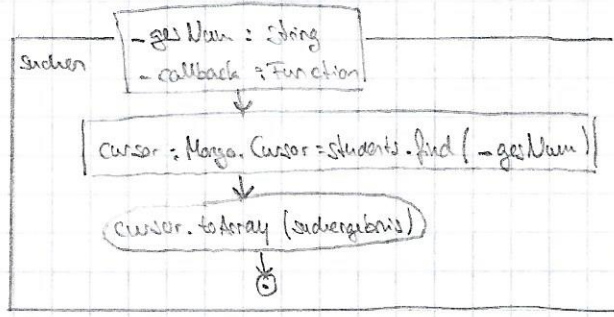 _gesNum : String
suchen
_callback : Function
cursor : Mongo.Cursor = students.find(_gesNum)
cursor.toArray (suchergebnis)